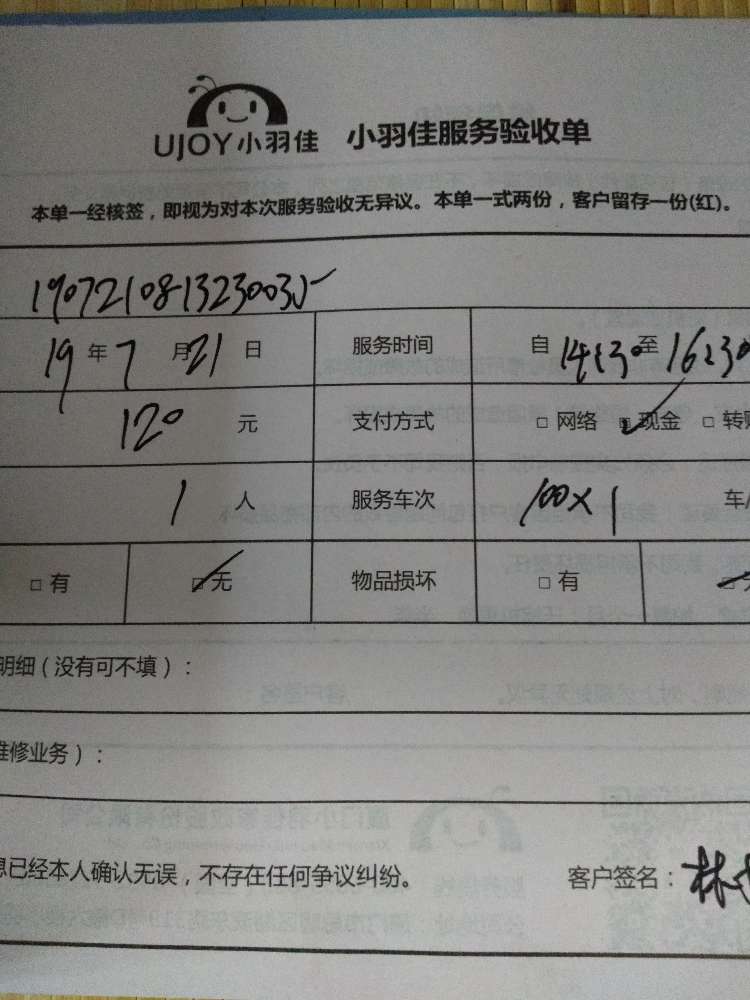 UJOY小羽佳 小羽佳服务验收单
本单一经核签，即视为对本次服务验收无异议。本单一式两份，客户留存一份(红)。
1907210813230035
19 年 7 月 21 日 服务时间 自 14:30 至 16:30
120 元 支付方式 □ 网络 ☑ 现金 □ 转账
1 人 服务车次 100×1 车/
□ 有 ☑ 无 物品损坏 □ 有
明细（没有可不填）：
维修业务）：
息已经本人确认无误，不存在任何争议纠纷。 客户签名：林